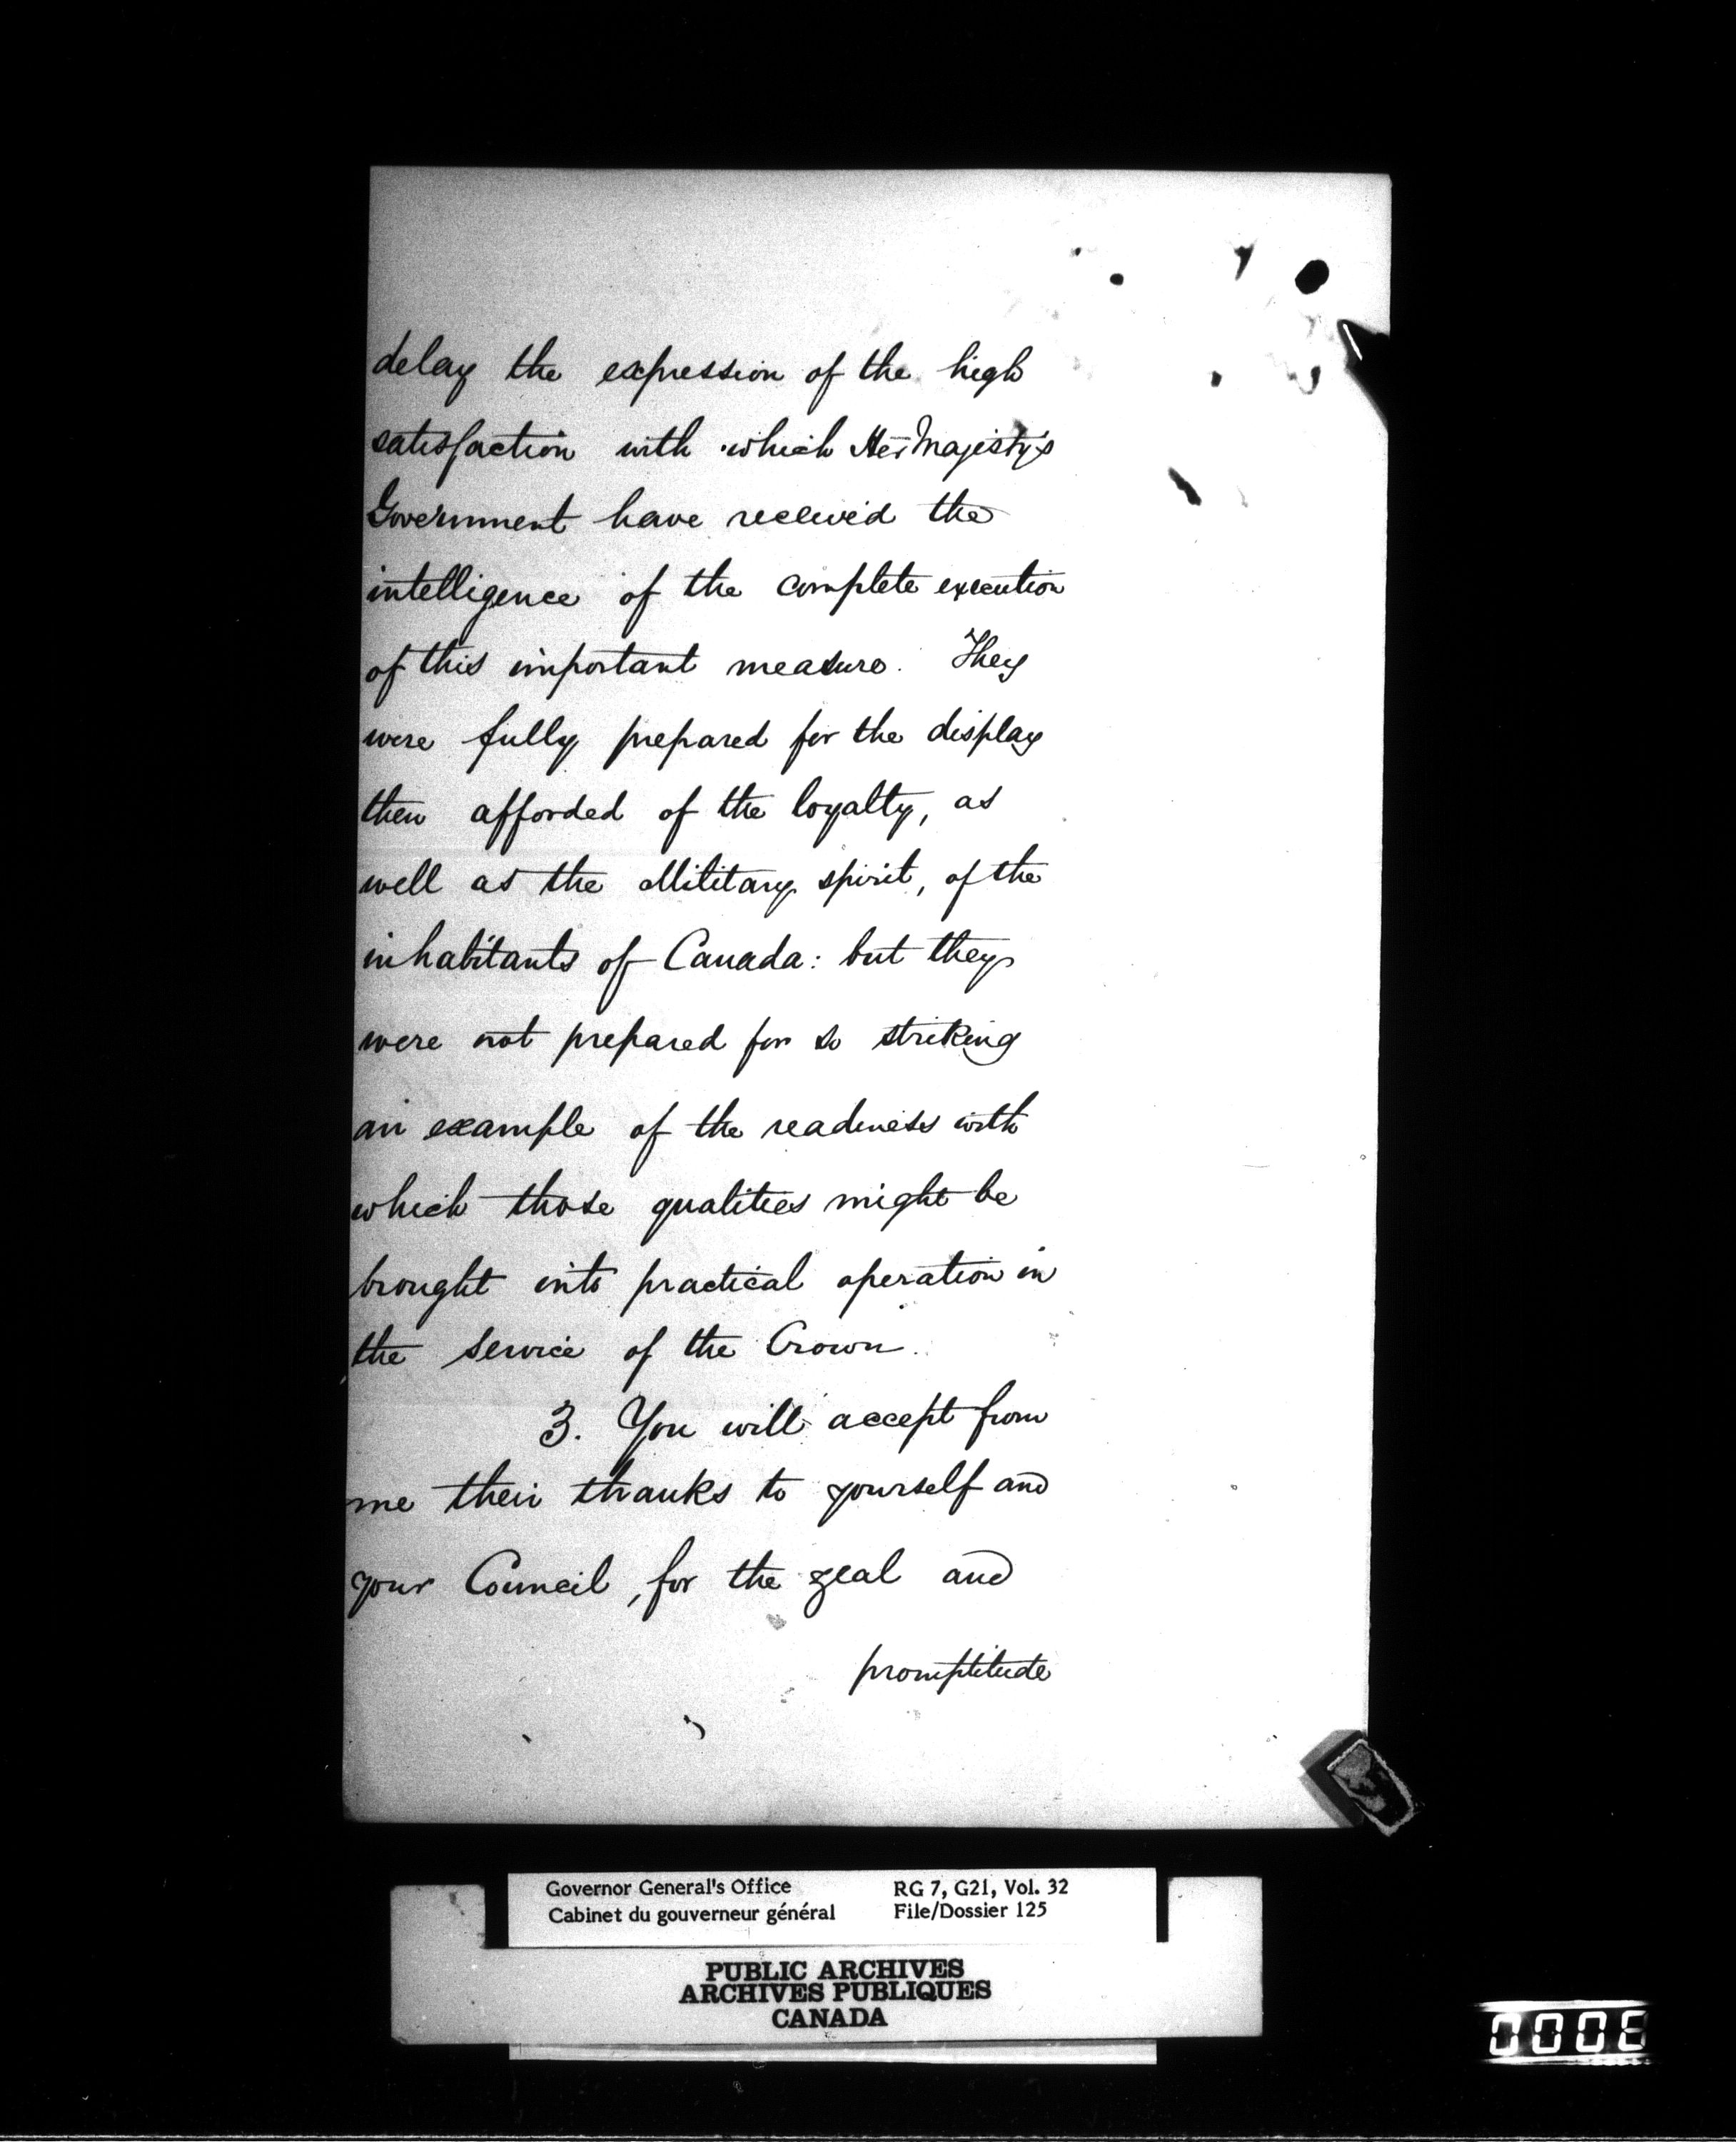 delay the expression of the high
satisfaction with which Her Majesty's
Government have received the
intelligence of the complete execution
of this important measure. They
were fully prepared for the display
then afforded of the loyalty, as
well as the Military spirit, of the
inhabitants of Canada: but they
were not prepared for so striking
an example of the readiness with
which those qualities might be
brought into practical operation in
the service of the Crown.
3. You will accept from
me their thanks to yourself and
your Council, for the zeal and
promptitude
Governor General's Office
Cabinet du gouverneur général
RG 7, G21, Vol. 32
File/Dossier 125
PUBLIC ARCHIVES
ARCHIVES PUBLIQUES
CANADA